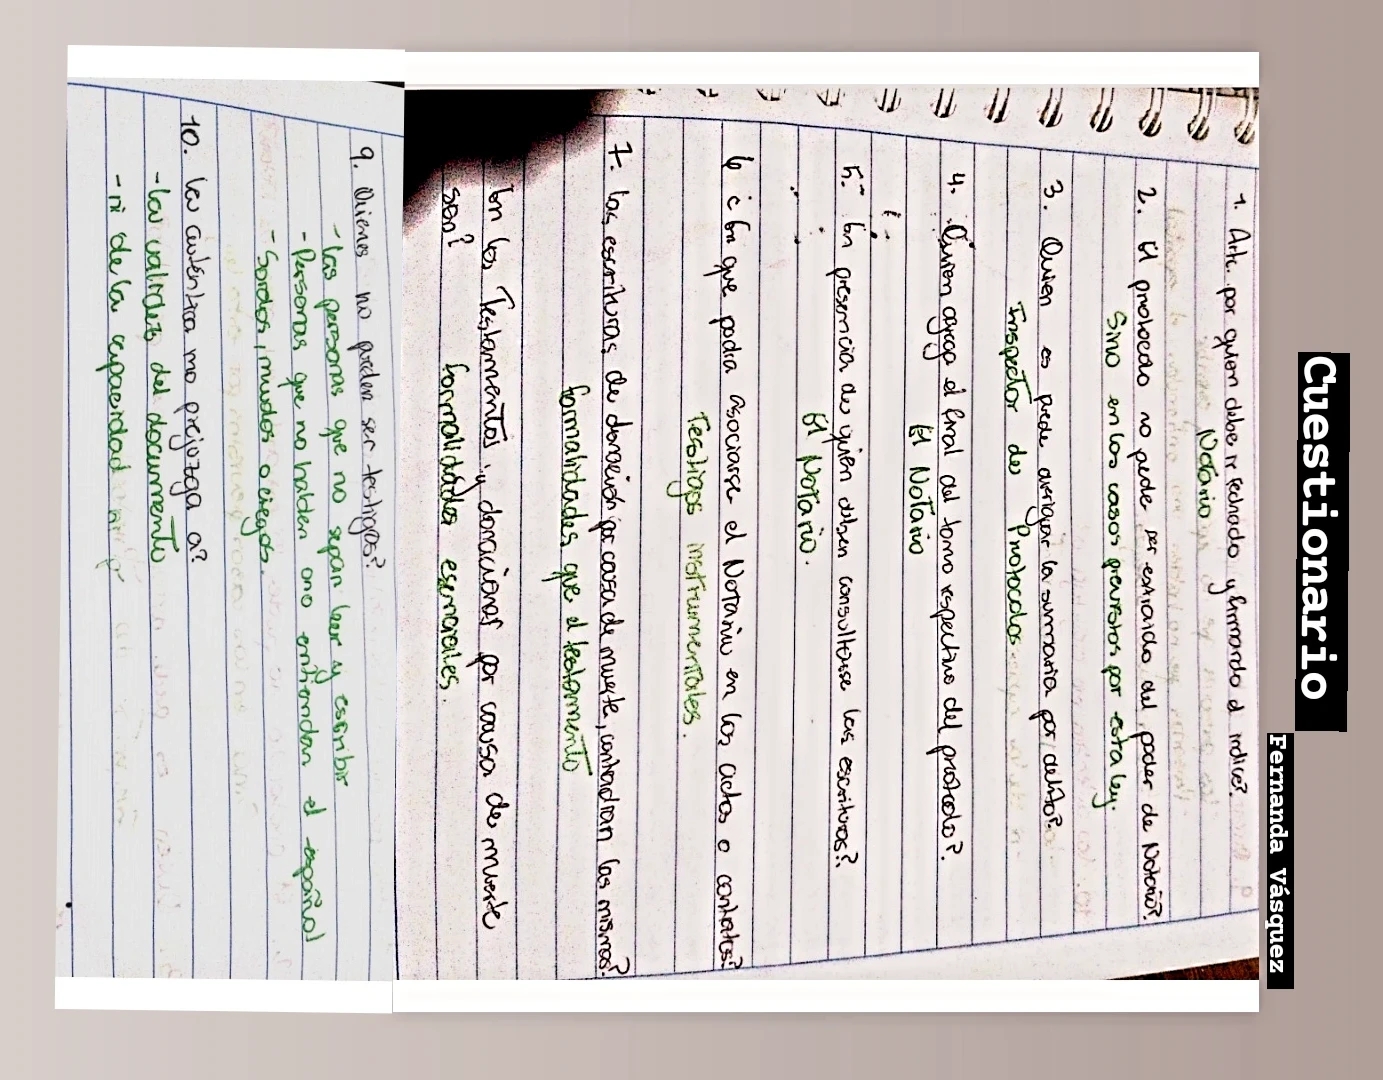 Cuestionario
Fernanda Vásquez
1. Art. por quien debe ir fechado y firmando el indice?
Notario
2. El protocolo no puede ser extraido del poder de Notario?
Sino en los casos previstos por esta ley.
3. Quien es puede averiguar la sumaria por delito?
Inspector de Protocolos
4. Quien agrega el final del tomo respectivo del protocolo?
El Notario
5. En presencia de quien deben consultarse las escrituras?
El Notario.
6 ¿En que podra asociarse el Notario en los actos o contratos?
Testigos instrumentales.
7. las escrituras de donación por causa de muerte, contendran las mismas?
formalidades que el testamento
En los Testamentos y donaciones por causa de muerte
son?
formalidades esenciales.
9. Quienes no pueden ser testigos?
- Las personas que no sepan leer y escribir
- Personas que no hablen o no entiendan el español
- Sordos, mudos o ciegos.
10. La auténtica no prejuzga a?
- La validez del documento
- ni de la capacidad